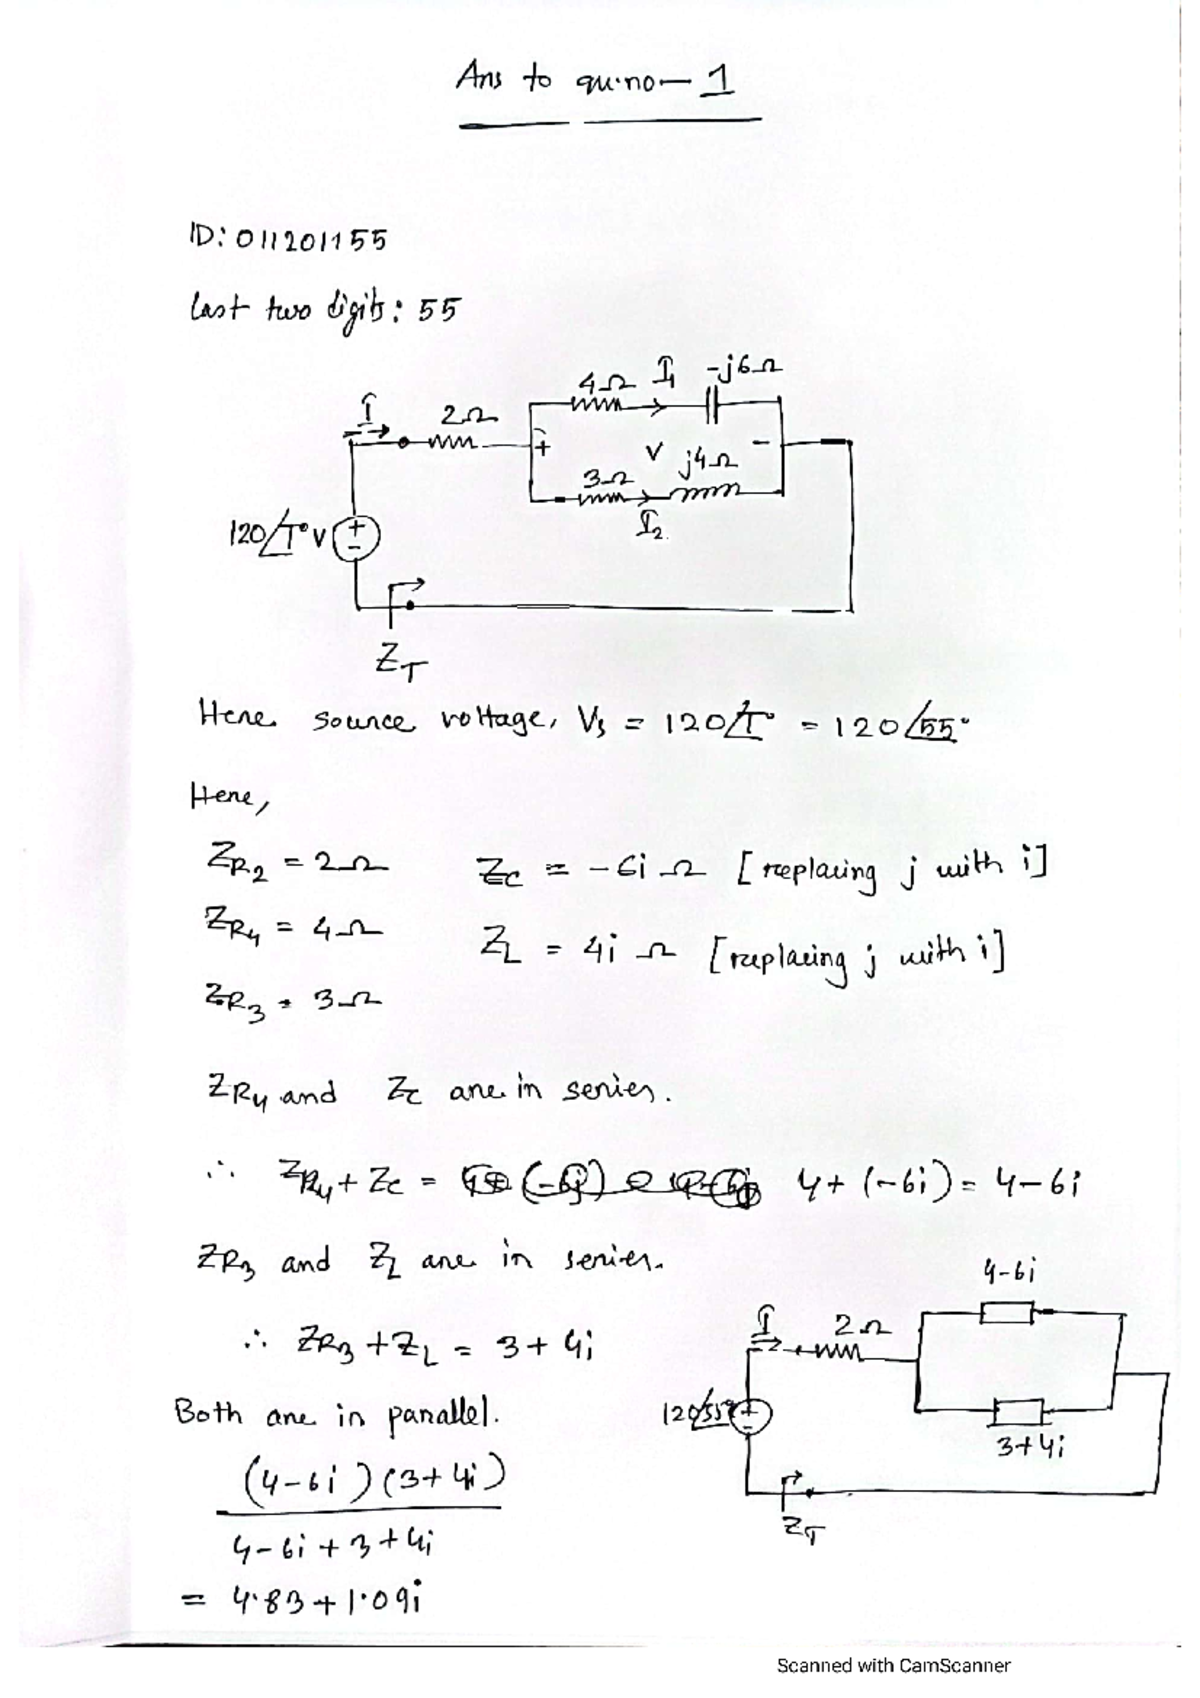 Ans to qu.no— 1
ID: 011201155
Last two digits: 55
I
2Ω
4Ω
I₁
-j6Ω
+
V
-
3Ω
j4Ω
I₂
120∠T° V
+
-
Z_T
Here source voltage, Vs = 120∠T° = 120∠55°
Here,
Z_R2 = 2Ω
Z_C = -6i Ω [replacing j with i]
Z_R4 = 4Ω
Z_L = 4i Ω [replacing j with i]
Z_R3 = 3Ω
Z_R4 and Z_C are in series.
∴ Z_R4 + Z_C = 4 + (-6i) = 4-6i
Z_R3 and Z_L are in series.
∴ Z_R3 + Z_L = 3 + 4i
4-6i
I
2Ω
120∠55°
+
-
3+4i
Z_T
Both are in parallel.
(4-6i)(3+4i)
4-6i+3+4i
= 4.83 + 1.09i
Scanned with CamScanner